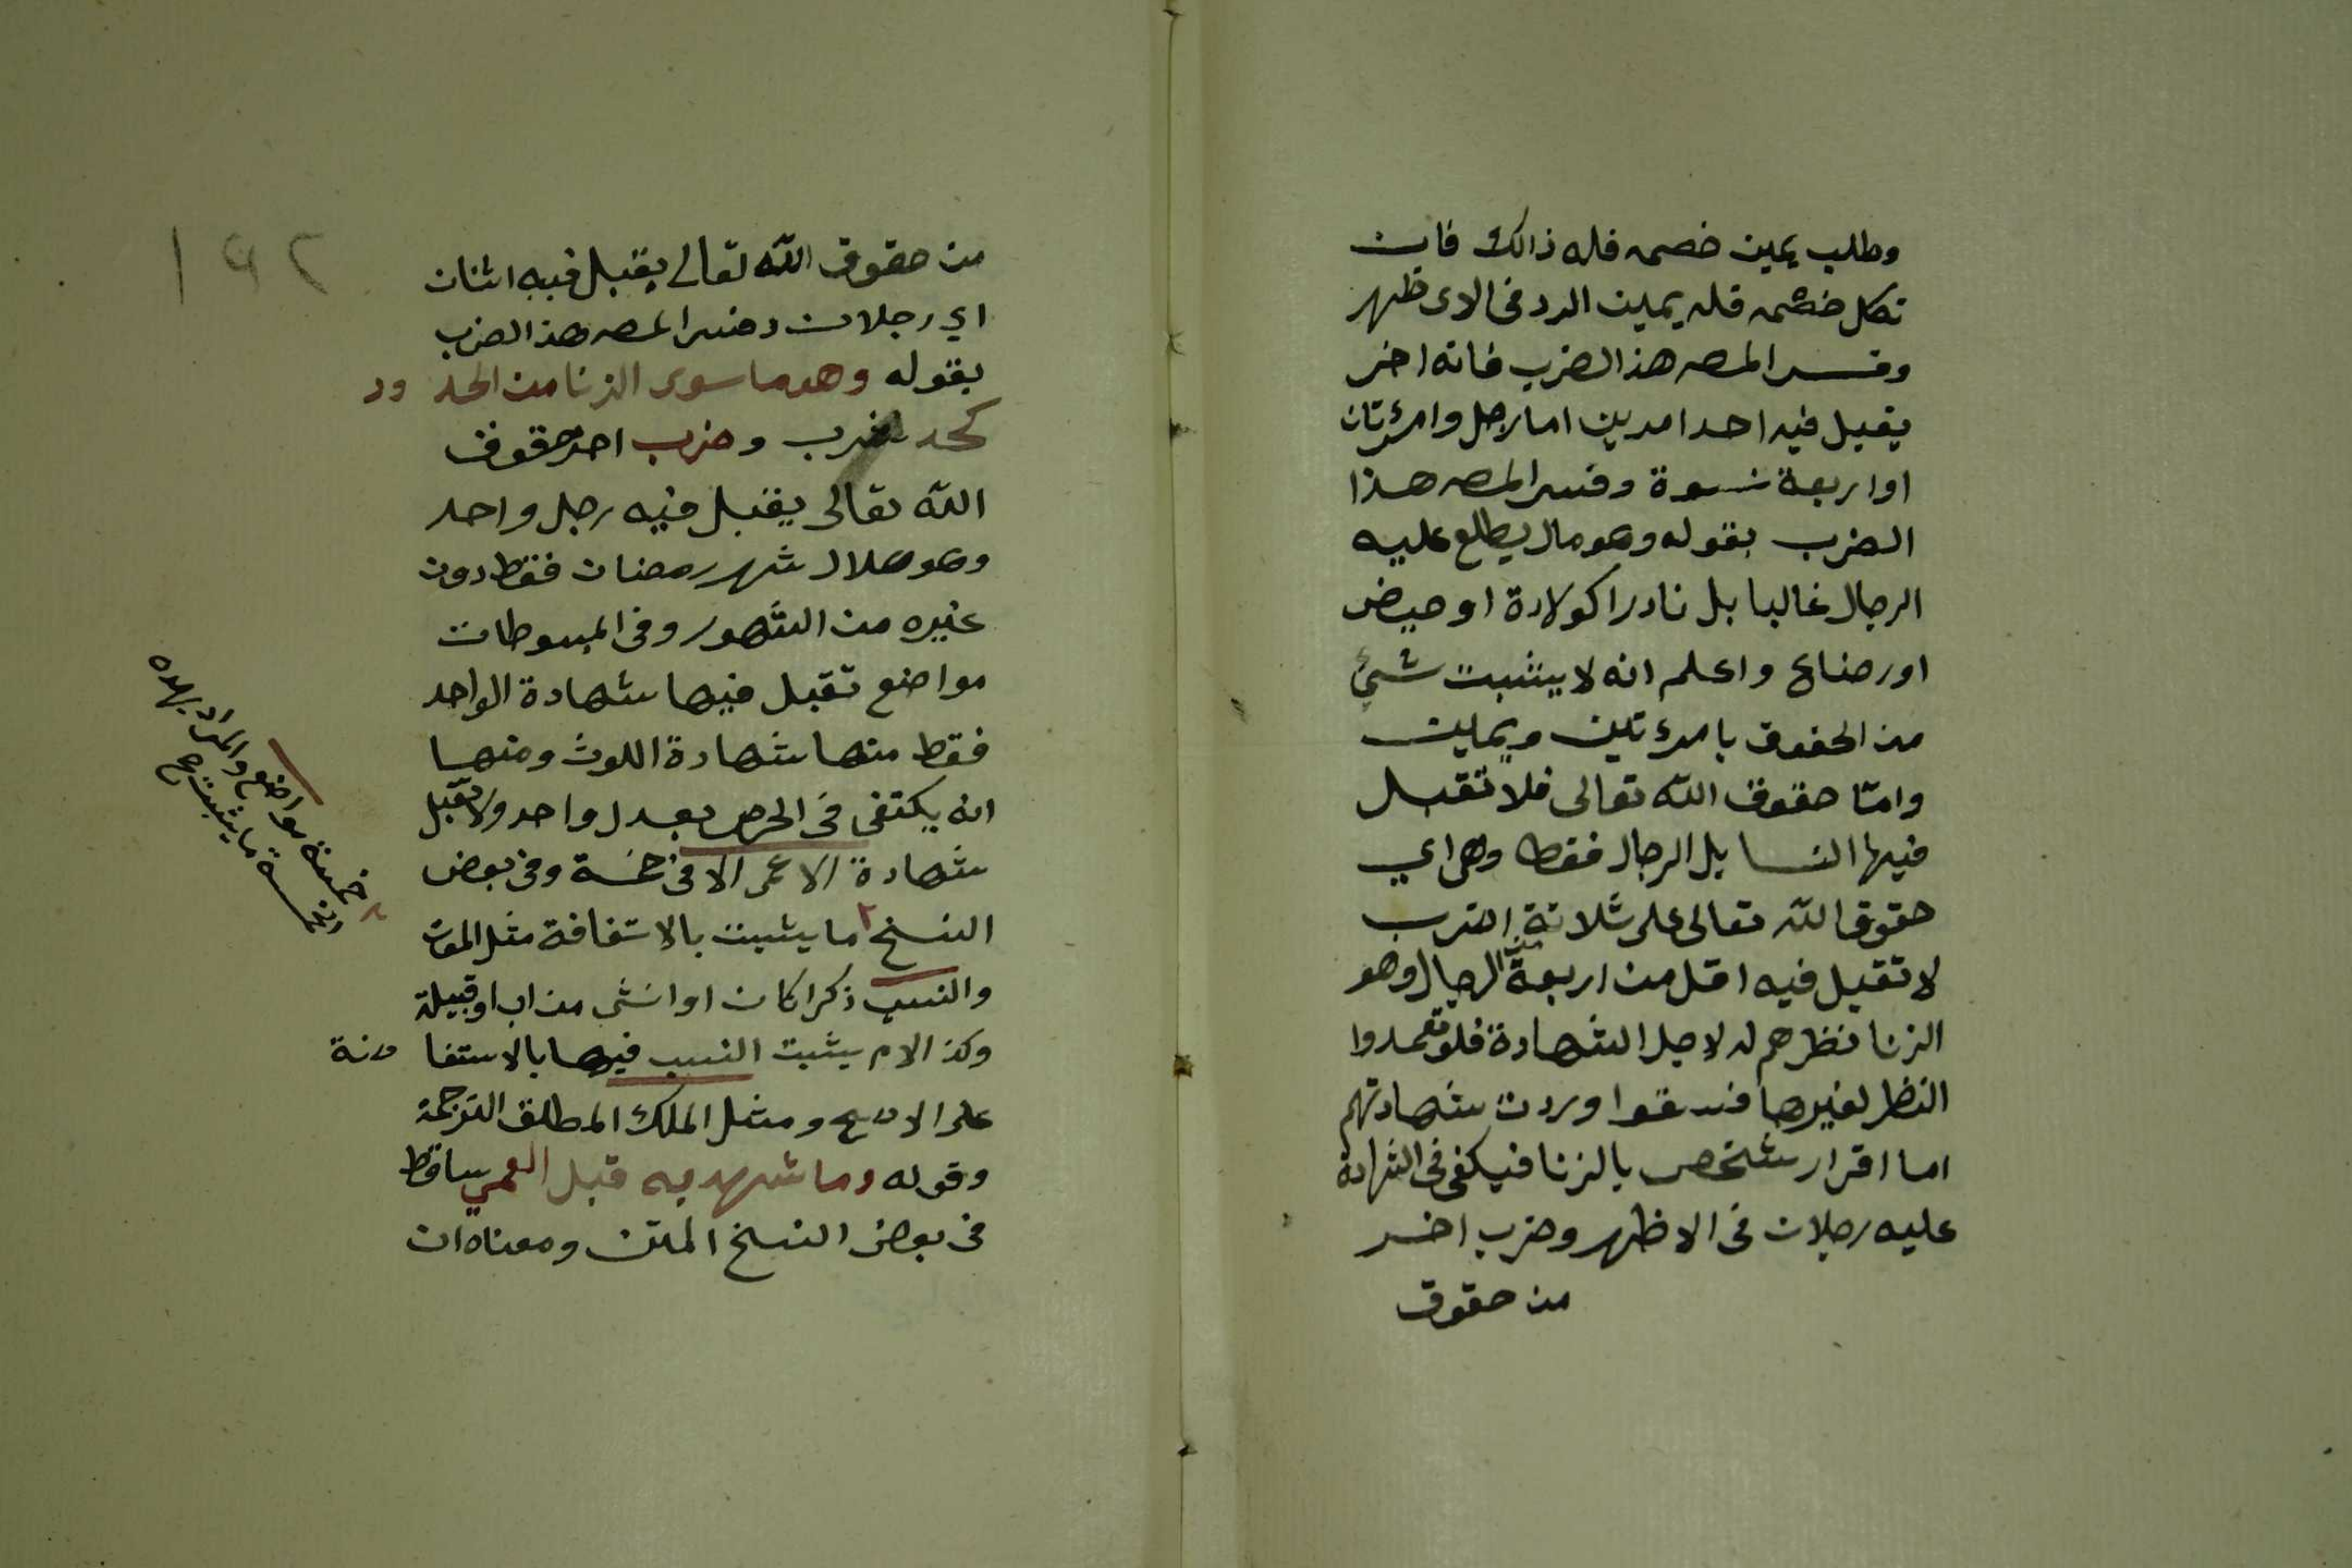 وطلب يمين خصمه فله ذالك فان
نكل خصمه فله يمين الرد فى الاظهر
وفسر المصـ هذا الضرب فانه اخر
يقبل فيه احد امرين اما رجل وامرئتان
او اربعة نسوة وفسر المصـ هذا
الضرب بقوله وهو مالا يطلع عليه
الرجال غالبا بل نادرا كولادة او حيض
او رضاع واعلم انه لا يثبت شيئ
من الحقوق بامرئتين ويمين
وامّا حقوق الله تعالى فلا تقبل
فيها النسا بل الرجال فقط وهى اي
حقوق الله تعالى على ثلاثة اضرب
لا تقبل فيه اقل من اربعة من الرجال وهو
الزنا نظرهم له لاجل الشهادة فلو تعمدوا
النظر لغيرها فسقوا وردت شهادتهم
اما اقرار شخص بالزنا فيكفى فى الشهادة
عليه رجلان فى الاظهر وضرب اخر
من حقوق
١٩٢
من حقوق الله تعالى يقبل فيه اثنان
اي رجلان وفسر المصـ هذا الضرب
بقوله وهو ما سوى الزنا من الحدود
كحد شرب وضرب اخر حقوق
الله تعالى يقبل فيه رجل واحد
وهو هلال شهر رمضان فقط دون
غيره من الشهور وفى المبسوطات
مواضع تقبل فيها شهادة الواحد
فقط منها شهادة اللوث ومنها
انه يكتفى فى الخرص بعدل واحد ولا تقبل
شهادة الاعمى الا فى خمسة وفى بعض
النسخ ما يثبت بالاستفافة مثل الموت
والنسب ذكرا كان او انثى من اب او قبيلة
وكذا الام يثبت النسب فيها بالاستفاضة
على الاصح ومثل الملك المطلق الترجمة
وقوله وما شهد به قبل العمي ساقط
فى بعض النسخ المتن ومعناه ان
خمسة مواضع والمراد بهذه
الخمسة ما يثبت